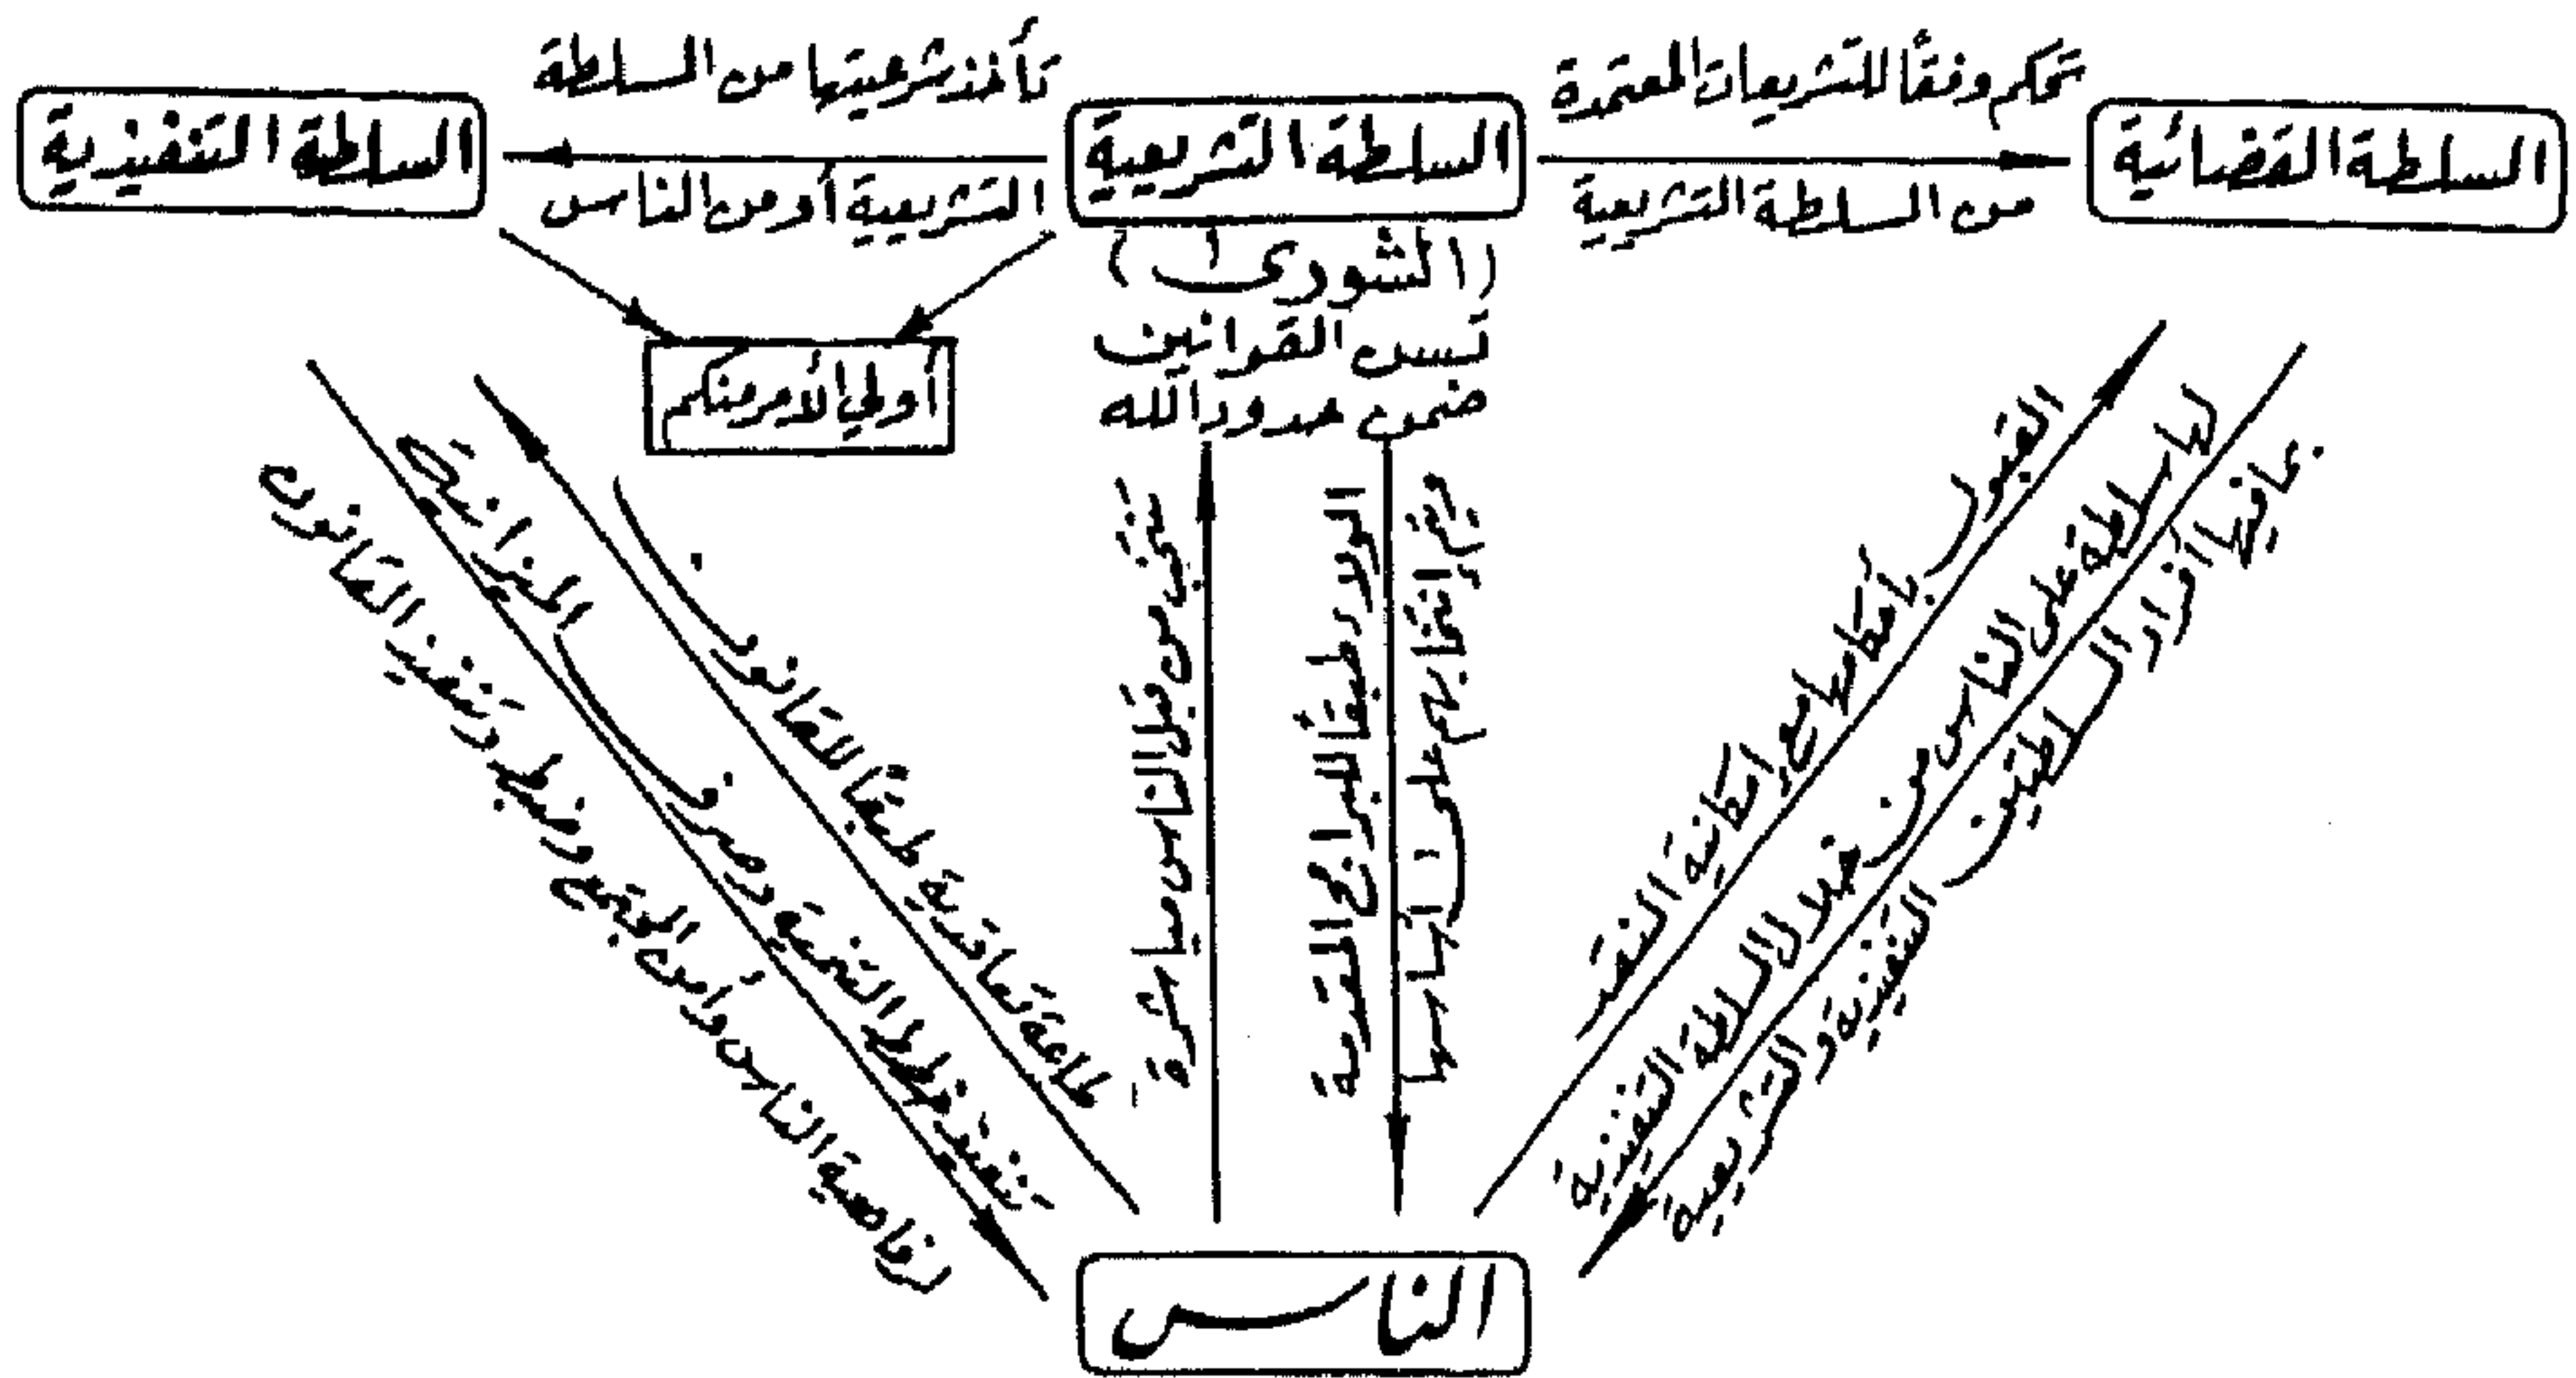 السلطة القضائية
تحكم وفقًا للتشريعات المعتمدة
من السلطة التشريعية
السلطة التشريعية
(الشورى)
تسن القوانين
ضمن حدود الله
تأخذ شرعيتها من السلطة
التشريعية أو من الناس
السلطة التنفيذية
أولي الأمر منكم
القبول بأحكامها مع إمكانية النقد
لها سلطة على الناس من خلال السلطة التنفيذية
بما فيها أفراد السلطتين التنفيذية والتشريعية
ويتم انتخابهم على أساسها
الولاء طبقًا للبرامج المقدمة
تنتخب من قبل الناس مباشرة
طاعة تعاقدية طبقًا للقانون
تنفيذ خطط التنمية وصرف الميزانية
لرفاهية الناس وأمن المجتمع وضبط وتنفيذ القانون
الناس